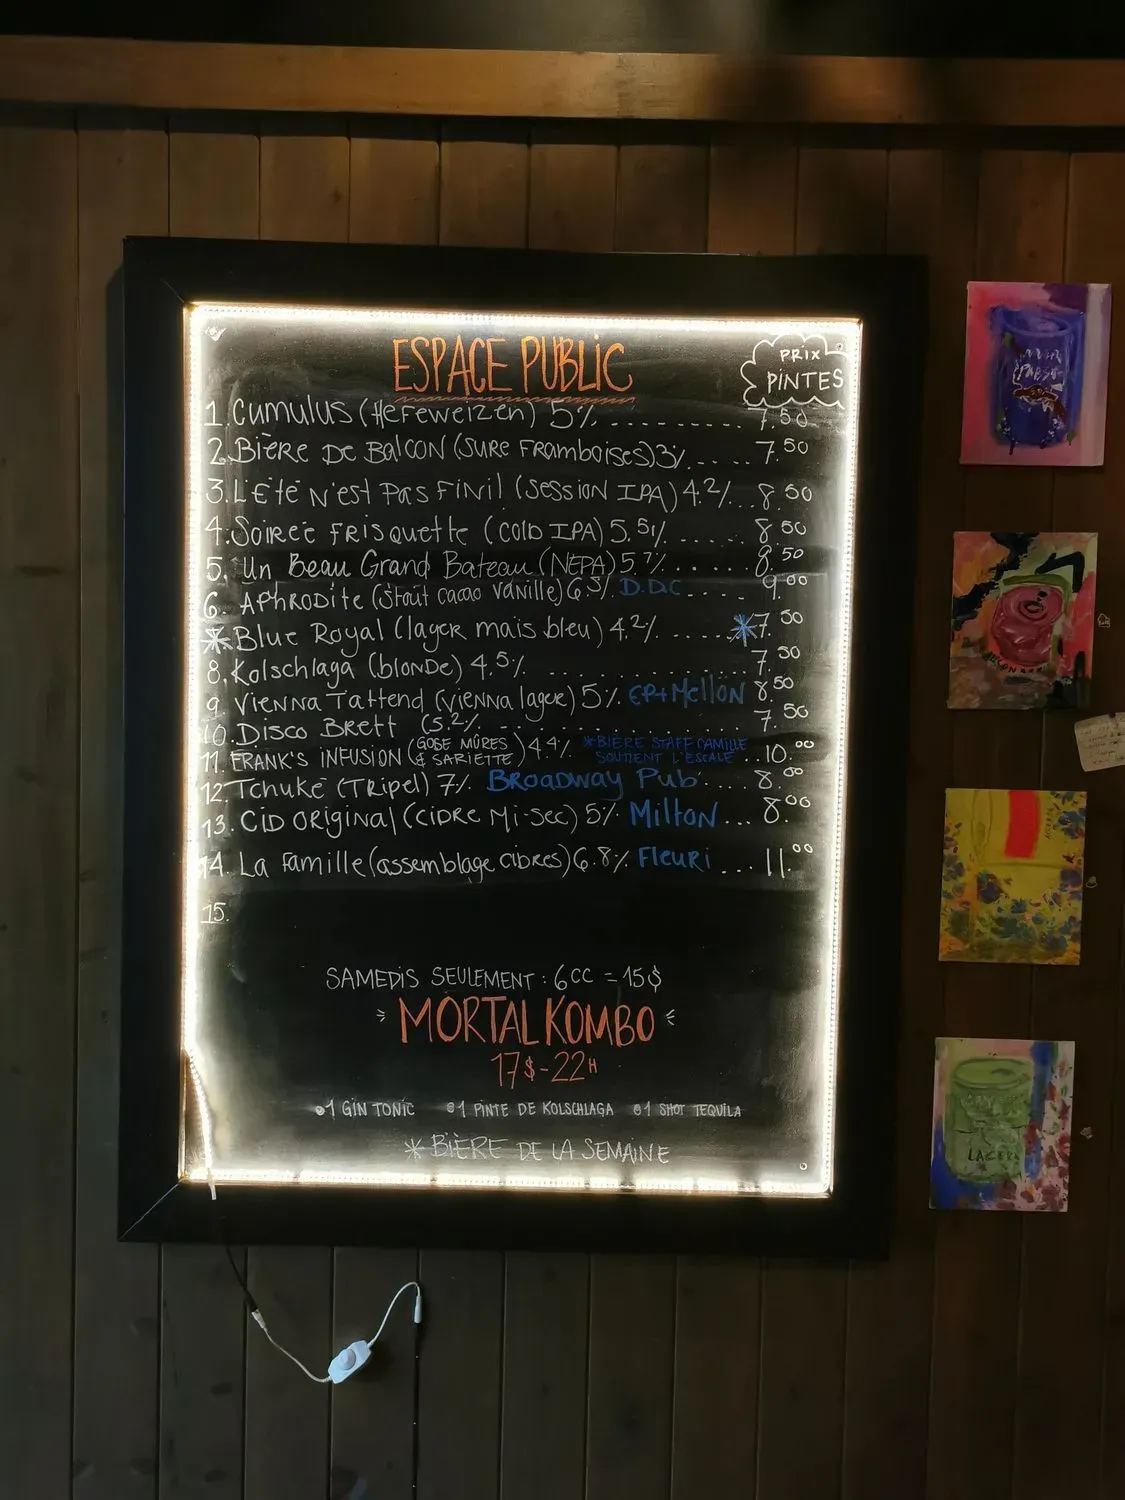 ESPACE PUBLIC
PRIX
PINTES
1. Cumulus (Hefeweizen) 5% ........ 7.50
2. Bière De Balcon (sure Framboises) 3% .... 7.50
3. L'Été n'est Pas Fini! (Session IPA) 4.2% .. 8.50
4. Soirée Frisquette (Cold IPA) 5.5% ...... 8.50
5. Un Beau Grand Bateau (NEPA) 5.7% ...... 8.50
6. Aphrodite (Stout cacao vanille) 6.5% D.D.C .... 9.00
* Blue Royal (lager mais bleu) 4.2% ..... *7.50
8. Kolschlaga (blonde) 4.5% .......... 7.50
9. Vienna Tattend (vienna lager) 5% EP+Mellön 8.50
10. Disco Brett (5.2% .......... 7.50
11. FRANK'S INFUSION (GOSE MÛRES & SARIETTE) 4.4% *BIÈRE STAFF FAMILLE SOUTIENT L'ESCALE ... 10.00
12. Tchuké (Tripel) 7% Broadway Pub .... 8.00
13. Cid Original (cidre Mi-Sec) 5% Milton ... 8.00
14. La Famille (assemblage cibres) 6.8% Fleuri ... 11.00
15.
SAMEDIS SEULEMENT : 6CC = 15$
MORTAL KOMBO
17$-22H
•1 GIN TONIC •1 PINTE DE KOLSCHLAGA •1 SHOT TEQUILA
* BIÈRE DE LA SEMAINE
LAGER